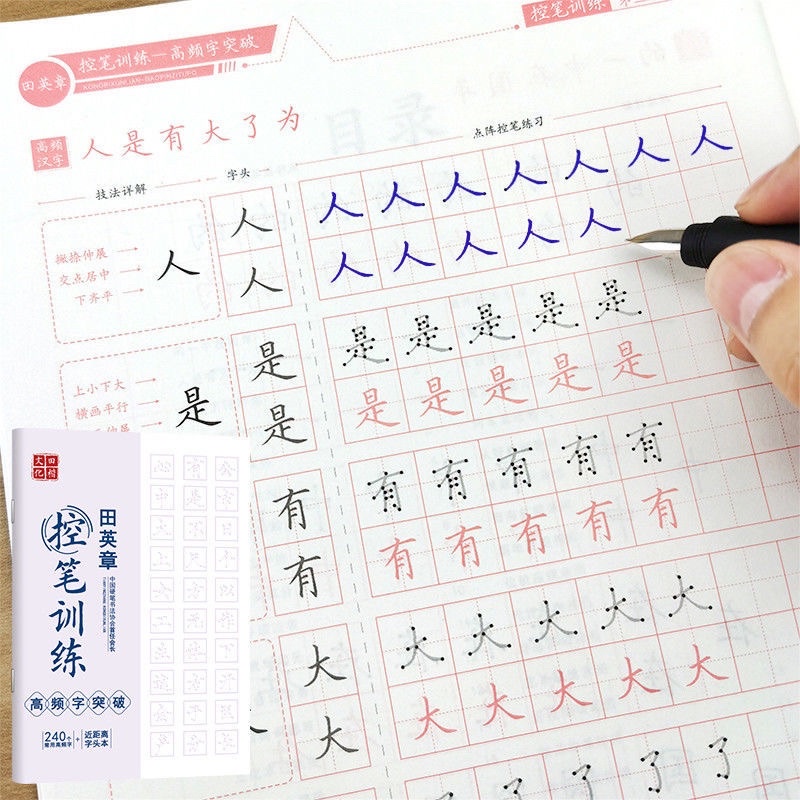 田英章
控笔训练—高频字突破
KONGBIXUNLIAN-GAOPINZITUPO
控笔训练
高频汉字
人是有大了为
技法详解
字头
点阵控笔练习
撇捺伸展
交点居中
下齐平
人
人
人
人人人人人人人
人人人人人
上小下大
横画平行
伸展
是
是
是
是是是是是
是是是是是
有
有
有有有有有
有有有有有
大
大
大大大大大
大大大大大
了了了了了
田楷文化
田英章
控笔训练
中国硬笔书法协会首任会长
高频字突破
240个常用高频字
+
近距离字头本